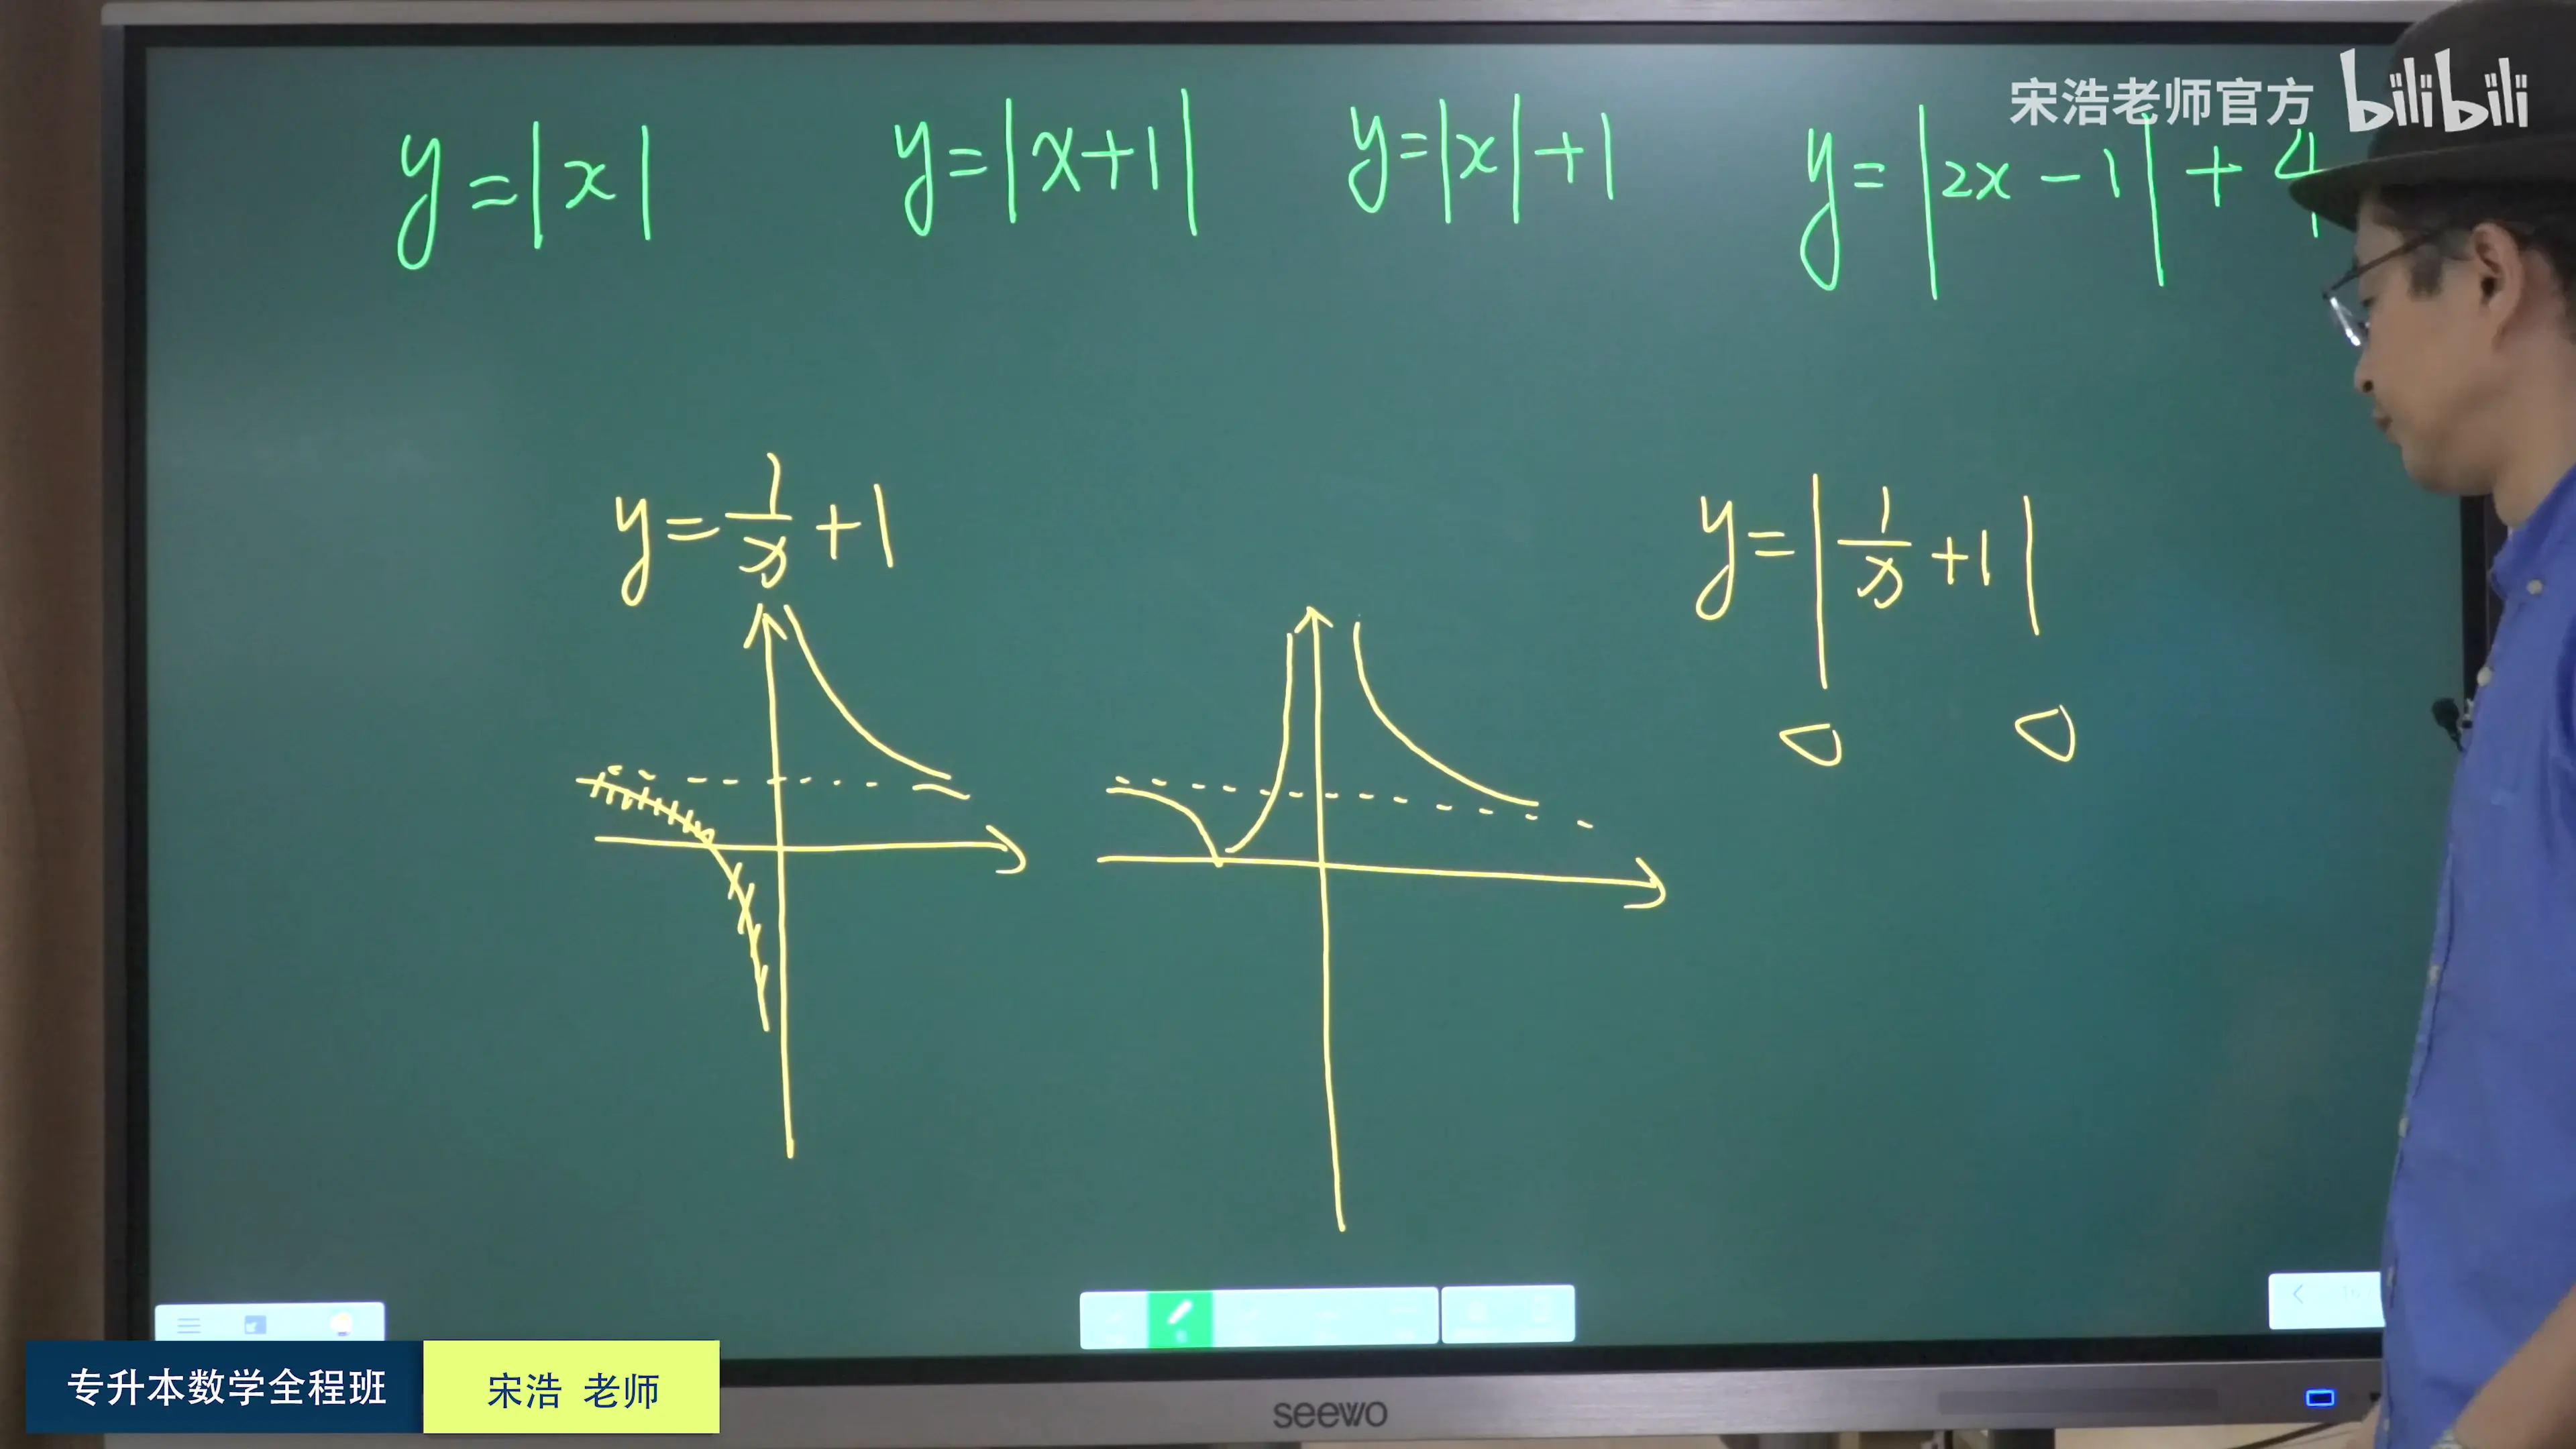 宋浩老师官方 bilibili
y=|x| y=|x+1| y=|x|+1 y=|2x-1|+4
y=1/x+1 y=|1/x+1|
专升本数学全程班 宋浩 老师
seewo